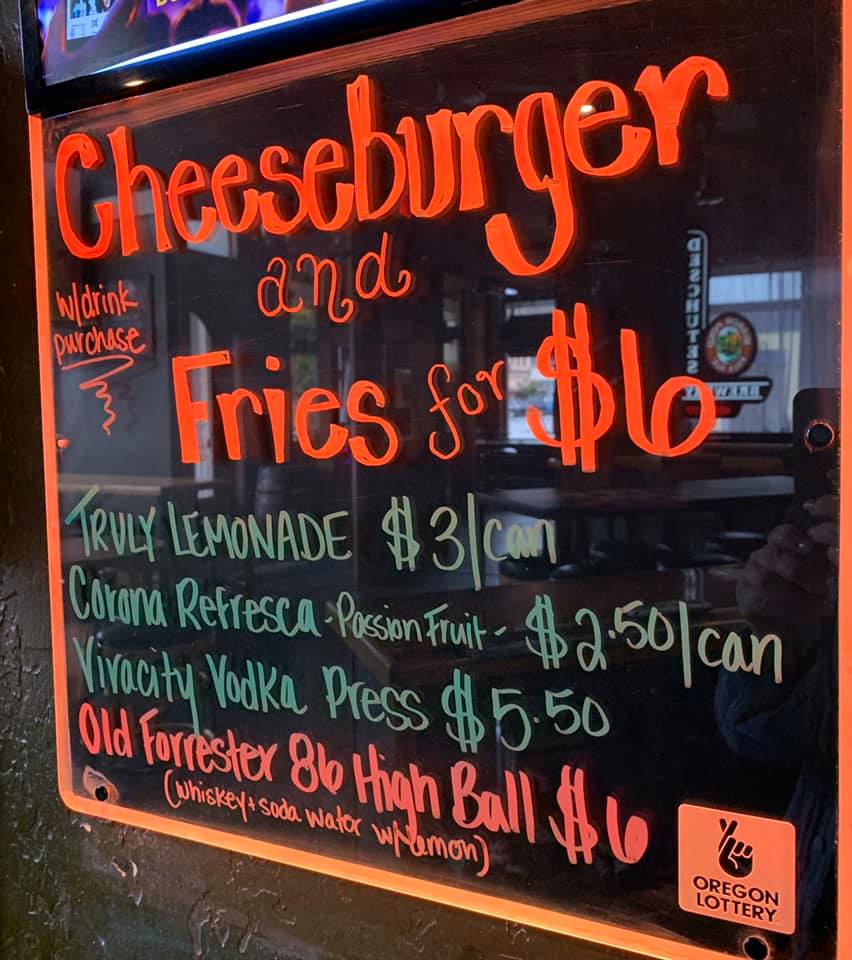 Cheeseburger
and
w/drink
purchase
Fries for $6
TRULY LEMONADE $3/can
Corona Refresca - Passion Fruit - $2.50/can
Vivacity Vodka Press $5.50
Old Forrester 86 High Ball $6
(whiskey + soda water w/lemon)
OREGON
LOTTERY
DESCHUTES
BREWERY